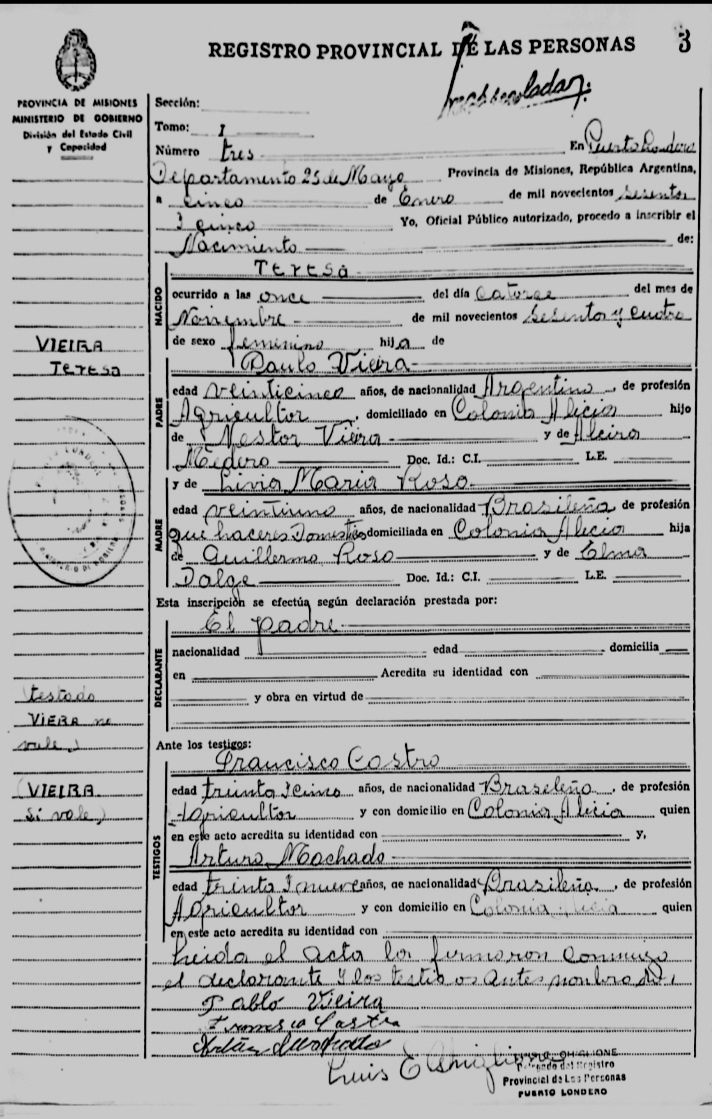 REGISTRO PROVINCIAL DE LAS PERSONAS 3
PROVINCIA DE MISIONES
MINISTERIO DE GOBIERNO
División del Estado Civil
y Capacidad
Sección:
Tomo: I
Número tres En Puerto Londero
Departamento 25 de Mayo Provincia de Misiones, República Argentina,
a cinco de Enero de mil novecientos sesenta
y cinco Yo, Oficial Público autorizado, procedo a inscribir el
Nacimiento de:
NACIDO
Teresa
ocurrido a las once del día Catorce del mes de
Noviembre de mil novecientos sesenta y cuatro
de sexo femenino hija de
VIEIRA
TERESA
PADRE
Paulo Viera
edad veinticinco años, de nacionalidad Argentino, de profesión
Agricultor, domiciliado en Colonia Alicia hijo
de Nestor Viera y de Alcira
Medero Doc. Id.: C.I. L.E.
MADRE
y de Livia Maria Rosa
edad veintiuno años, de nacionalidad Brasileña de profesión
que haceres Domestico domiciliada en Colonia Alicia hija
de Guillermo Rosa y de Elma
Dalge Doc. Id.: C.I. L.E.
Esta inscripción se efectúa según declaración prestada por:
DECLARANTE
El padre
nacionalidad edad domicilia
en Acredita su identidad con
y obra en virtud de
testado
VIERA no
vale)
(VIEIRA
si vale)
Ante los testigos:
TESTIGOS
Francisco Castro
edad trinta y cinco años, de nacionalidad Braseleña, de profesión
Agricultor y con domicilio en Colonia Alicia quien
en este acto acredita su identidad con y,
Arturo Machado
edad trinta y nueve años, de nacionalidad Brazileña, de profesión
Agricultor y con domicilio en Colonia Alicia quien
en este acto acredita su identidad con
Leida el acta la firmaron conmigo
el declarante y los testigos antes nombrados
Pablo Vieira
Francisco Castro
Luis E Ghiglione
GHIGLIONE
Delegado del Registro
Provincial de Las Personas
PUERTO LONDERO